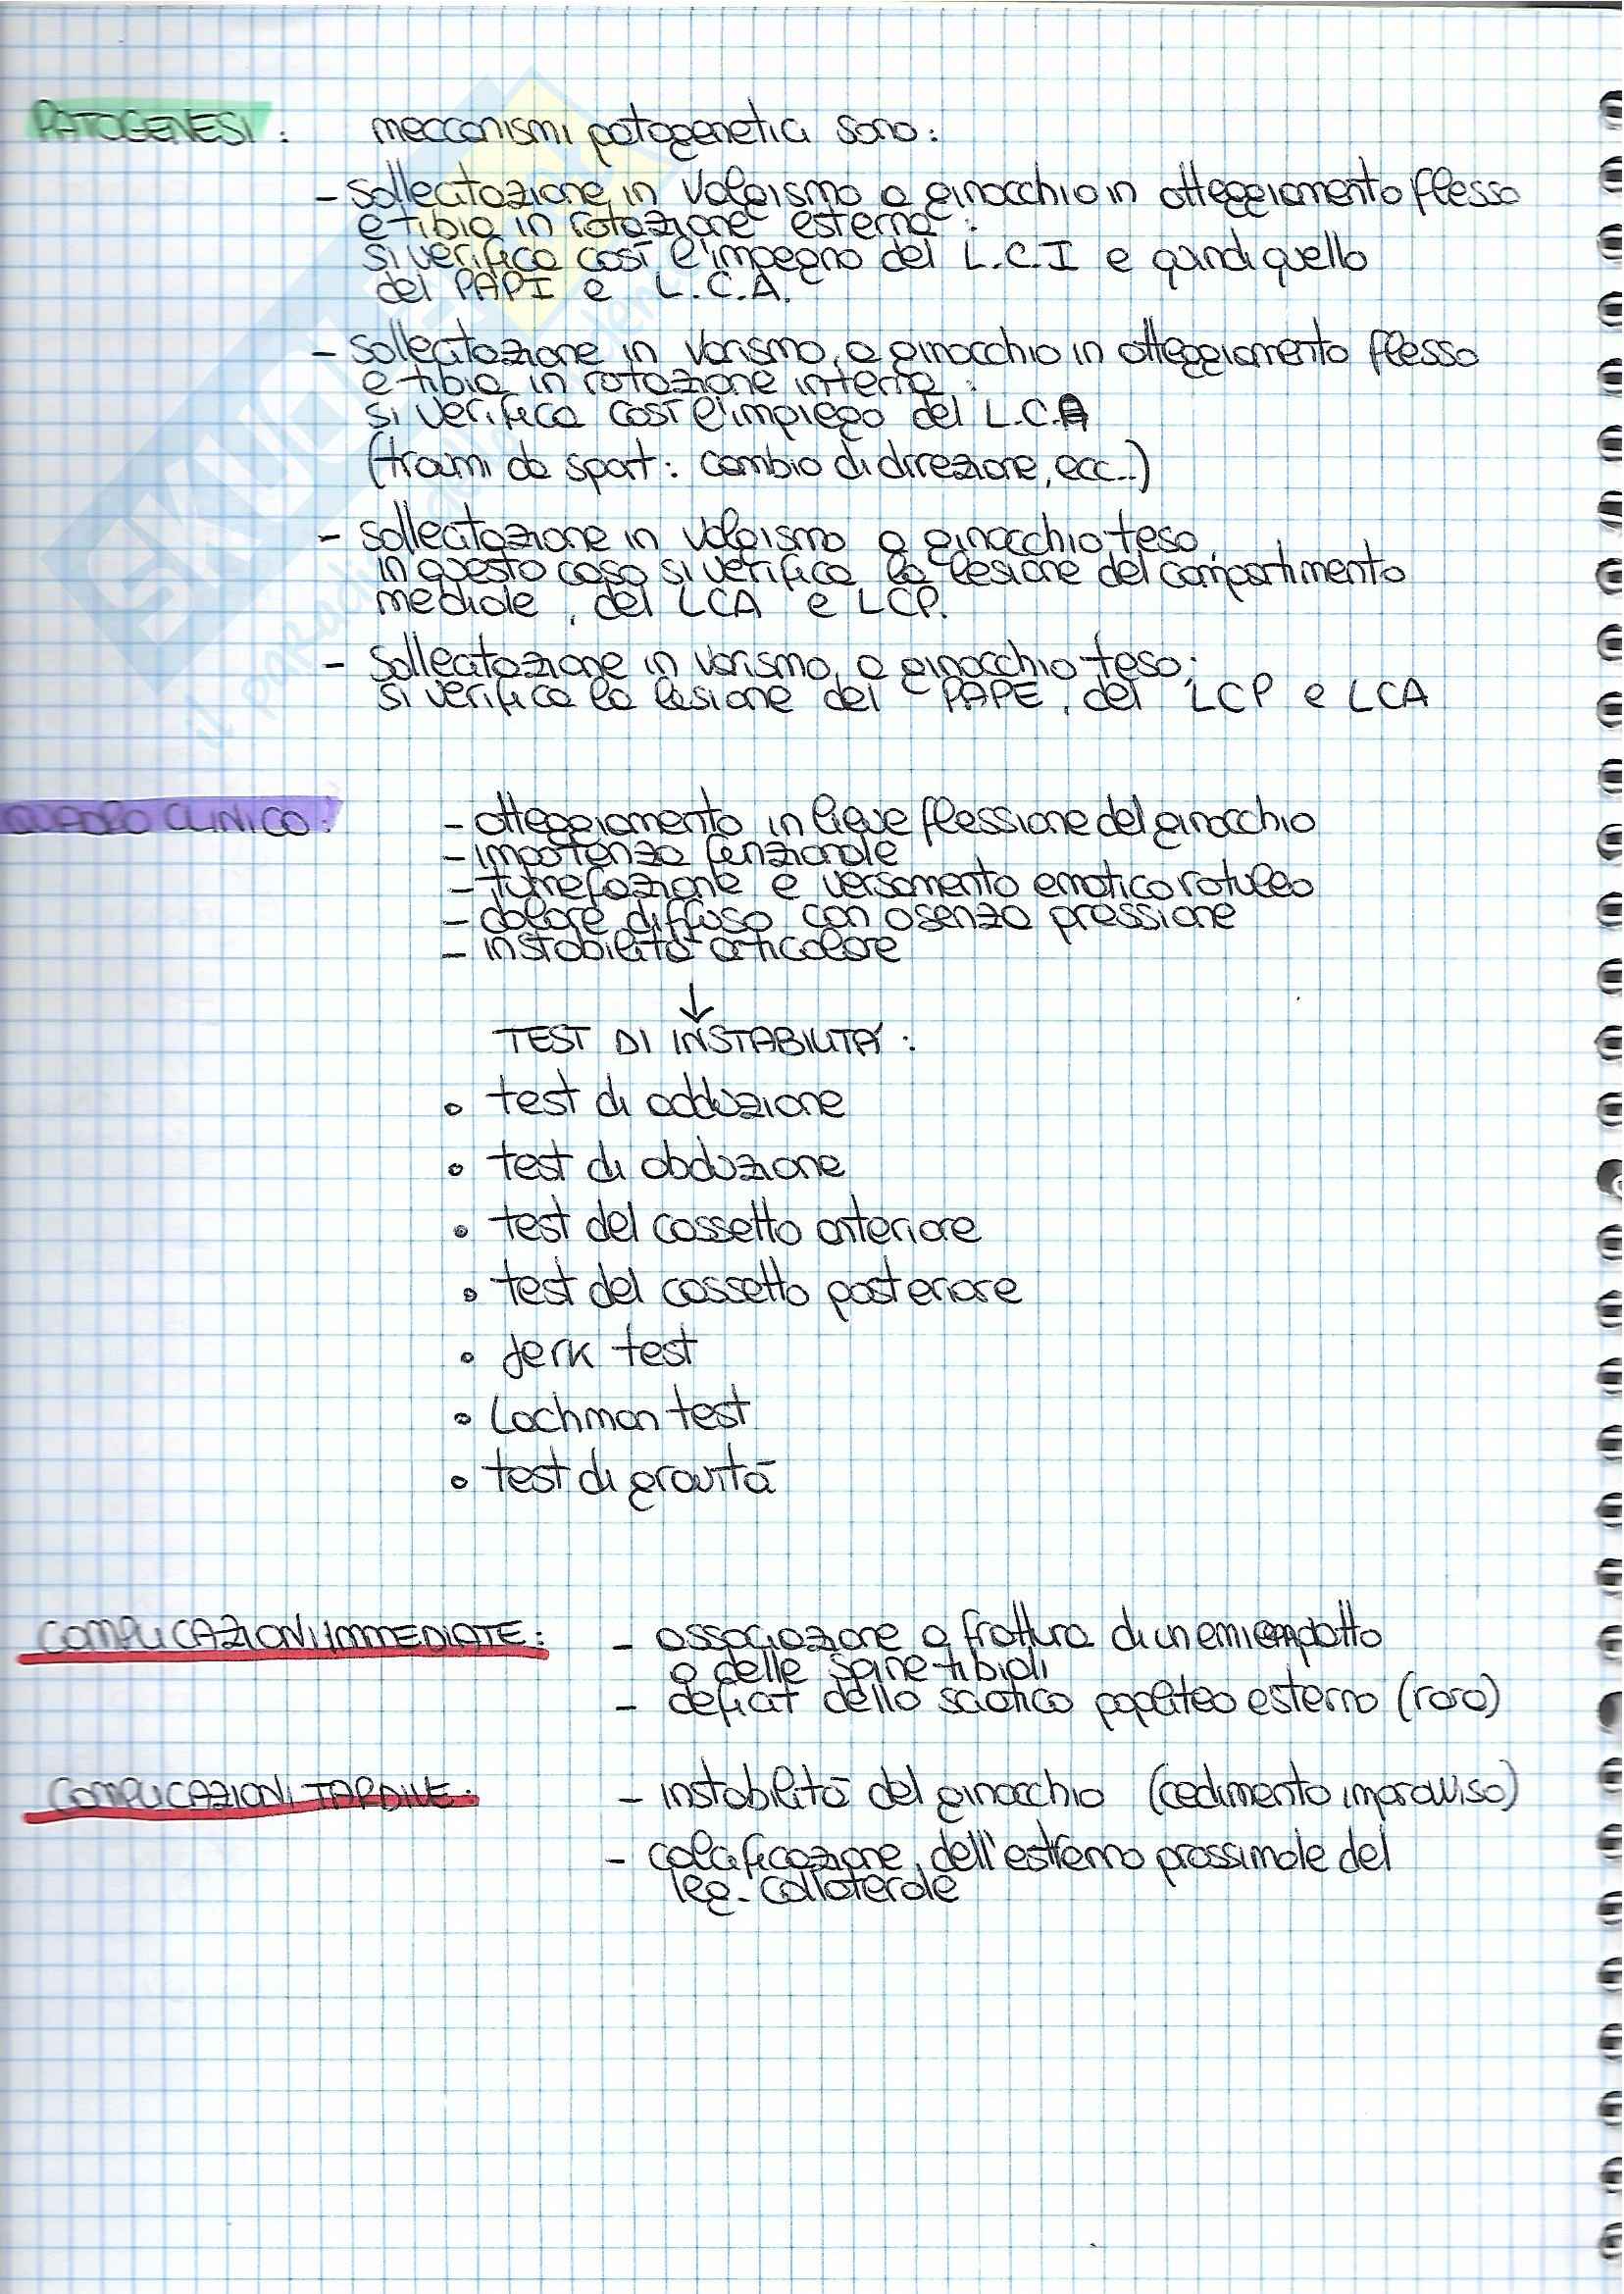 PATOGENESI : meccanismi patogenetici sono:
- sollecitazione in valgismo a ginocchio in atteggiamento flesso
e tibia in rotazione esterna :
si verifica così l'impegno del L.C.I e quindi quello
del PAPI e L.C.A.
- sollecitazione in varismo, a ginocchio in atteggiamento flesso
e tibia in rotazione interna :
si verifica così l'impiego del L.C.A
(traumi da sport: cambio di direzione, ecc..)
- sollecitazione in valgismo a ginocchio teso,
in questo caso si verifica la lesione del compartimento
mediale, del LCA e LCP.
- sollecitazione in varismo, a ginocchio teso;
si verifica la lesione del PAPE, del LCP e LCA
QUADRO CLINICO: - atteggiamento in lieve flessione del ginocchio
- impotenza funzionale
- tumefazione e versamento ematico rotuleo
- dolore diffuso con o senza pressione
- instabilità articolare
↓
TEST DI INSTABILITA' :
• test di adduzione
• test di abduzione
• test del cassetto anteriore
• test del cassetto posteriore
• Jerk test
• Lachman test
• test di gravità
COMPLICAZIONI IMMEDIATE: - associazione a frattura di un emipiatto
o delle spine tibiali
- deficit dello sciatico popliteo esterno (raro)
COMPLICAZIONI TARDIVE: - instabilità del ginocchio (cedimento improvviso)
- calcificazione, dell'estremo prossimale del
leg. collaterale